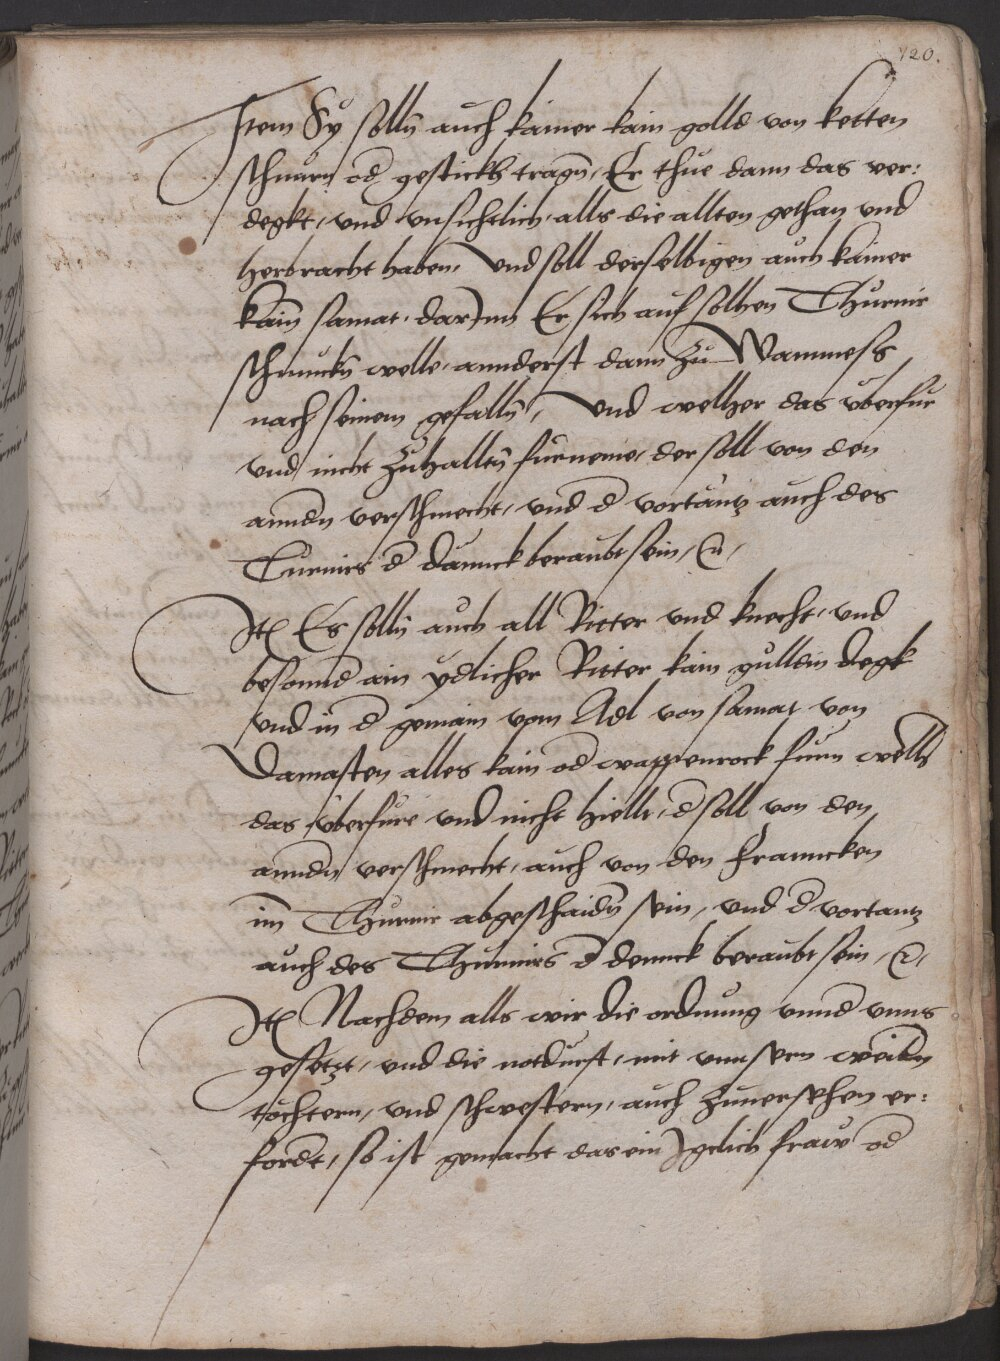 120.
Item Sy solln̄ auch kainer kain golld von ketten
schnuͤrn od̄ gestickht tragn̄, Er thue dann das ver:
degkt, vnd vnsichtlich, alls die allten gethan vnd
herbracht haben, Vnd soll derselbigen auch kainer
kain̄ samat, dar Jnn Er sich auf solhen Thurnir
schmuckn̄ welle, annderst dann zu Wammess
nach seinem gefalln̄, Vnd welher das vberfur
vnd nicht zuhalltn̄ furneme, der soll von den
anndn̄ verschmecht, vnd d̄ vortanntz auch des
Turnirs d̄ dannck beraubt sein, ꝛc,
Itē Es solln̄ auch all Ritter vnd knecht, vnd
besonnd̄ ain ydlicher Ritter kain gulldin degk
vnd in d̄ gemain vom Adl von samat von
Damasten alles kain od̄ wappenrock furn wellh
das vberfure vnd nicht hiellt, d̄ soll von den
anndn̄ verschmecht, auch von den Franncken
im̄ Thurnir abgeschaidn̄ sein, vnd d̄ vortantz
auch des Thurnirs d̄ dennck beraubt sein, ꝛc,
Itē Nachdem alls wir die ordnung vnnd vnns
gesetzt, vnd die notdurft, mit vnnsern weibn̄
tochtern, vnd schwestern, auch zuuersehen er:
fordt̄, so ist gemacht das ein Jgclich fraw od̄